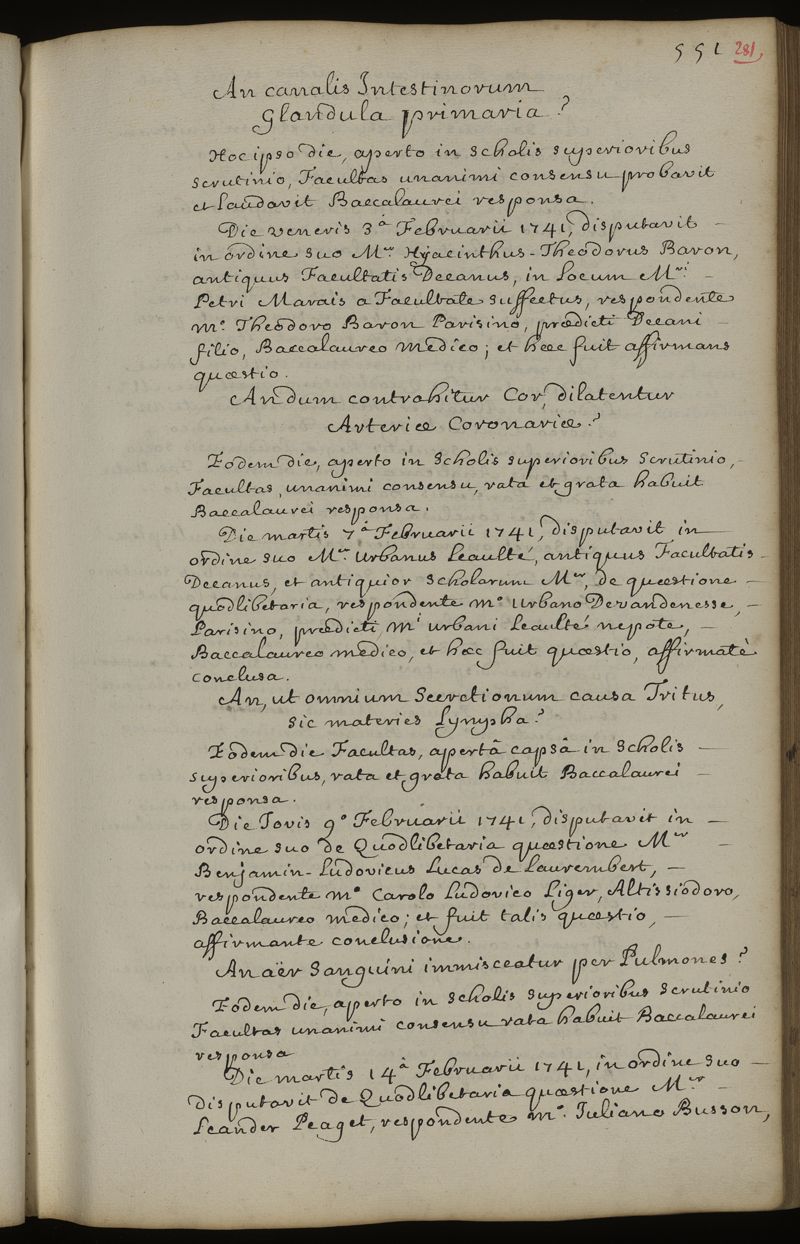 551 281
An canalis Intestinorum
glandula primaria?
Hoc ipso die, aperto in Scholis superioribus
scrutinio, Facultas unanimi consensu probavit
et Laudavit Baccalaurei responsa.
Die veneris 3ª Februarii 1741, disputavit —
in ordine suo Mer Hyacinthus-Theodorus Baron,
antiquus Facultatis Decanus, in Locum Mri —
Petri Marais a Facultate suffectus, respondente
mo Theodoro Baron Parisino, prædicti Decani —
filio, Baccalaureo medico; et hæc fuit affirmans
quæstio.
An dum contrahitur Cor, dilatentur
Arteriæ Coronariæ?
Eodem die, aperto in Scholis superioribus Scrutinio, —
Facultas, unanimi consensu, rata et grata habuit
Baccalaurei responsa.
Die martis 7ª Februarii 1741, disputavit in —
ordine suo Mer Urbanus Leaulté, antiquus Facultatis —
Decanus, et antiquior Scholarum Mer, de quæstione —
quodlibetaria, respondente mo Urbano Devandenesse, —
Parisino, prædicti Mi Urbani Leaulté nepote, —
Baccalaureo medico, et hæc fuit quæstio, affirmatè
conclusa.
An, ut omnium Secretionum causa Tritus,
sic materies Lympha?
Eodem die Facultas, apertâ capsâ in Scholis —
superioribus, rata et grata habuit Baccalaurei —
responsa.
Die Jovis 9º Februarii 1741, disputavit in —
ordine suo de Quodlibetaria quæstione Mer —
Benjamin-Ludovicus Lucas de Laurembert, —
respondente mo Carolo Ludovico Liger, Altissiodoro,
Baccalaureo medico; et fuit talis quæstio, —
affirmante conclusione.
An aër Sanguini immisceatur per Pulmones?
Eodem die, aperto in Scholis superioribus Scrutinio
Facultas unanimi consensu rata habuit Baccalaurei
responsa
Die martis 14ª Februarii 1741, in ordine suo —
disputavit de Quodlibetaria quæstione Mer —
Leander Peaget, respondente mo Juliano Busson,